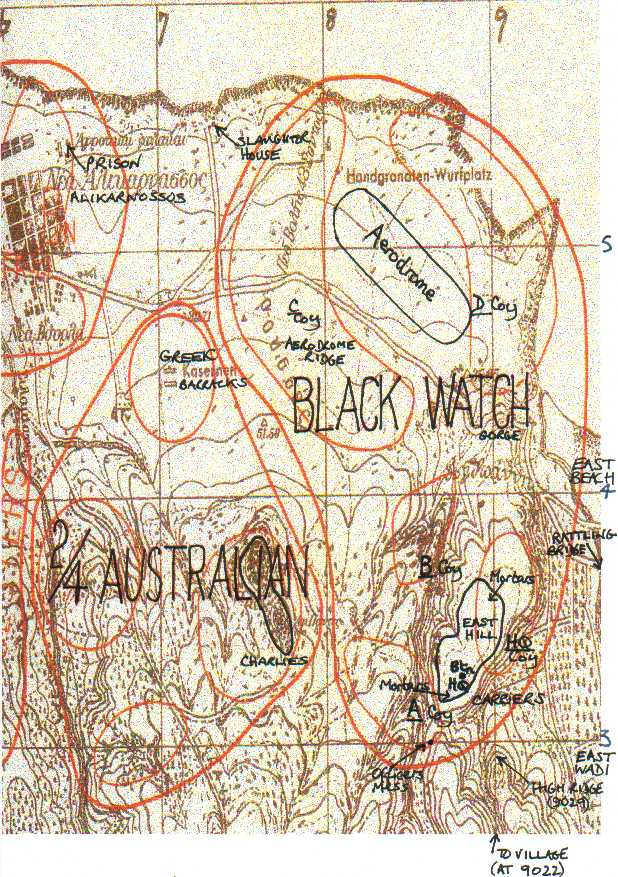 7
8
9
SLAUGHTER
HOUSE
PRISON
ΑΛΙΚΑΡΝΑΣΣΟΣ
ALIKARNOSSOS
Handgranaten-Wurfplatz
Aerodrome
5
C
Coy
D Coy
AERODROME
RIDGE
GREEK
Kasernen
BARRACKS
BLACK WATCH
GORGE
EAST
BEACH
4
RATTLING
BRIDGE
2/4 AUSTRALIAN
B Coy
Mortars
EAST
HILL
HQ
Coy
Btn
HQ
CHARLIES
Mortars
CARRIERS
A Coy
3
EAST
WADI
OFFICERS
MESS
HIGH RIDGE
(9029)
TO VILLAGE
(AT 9022)